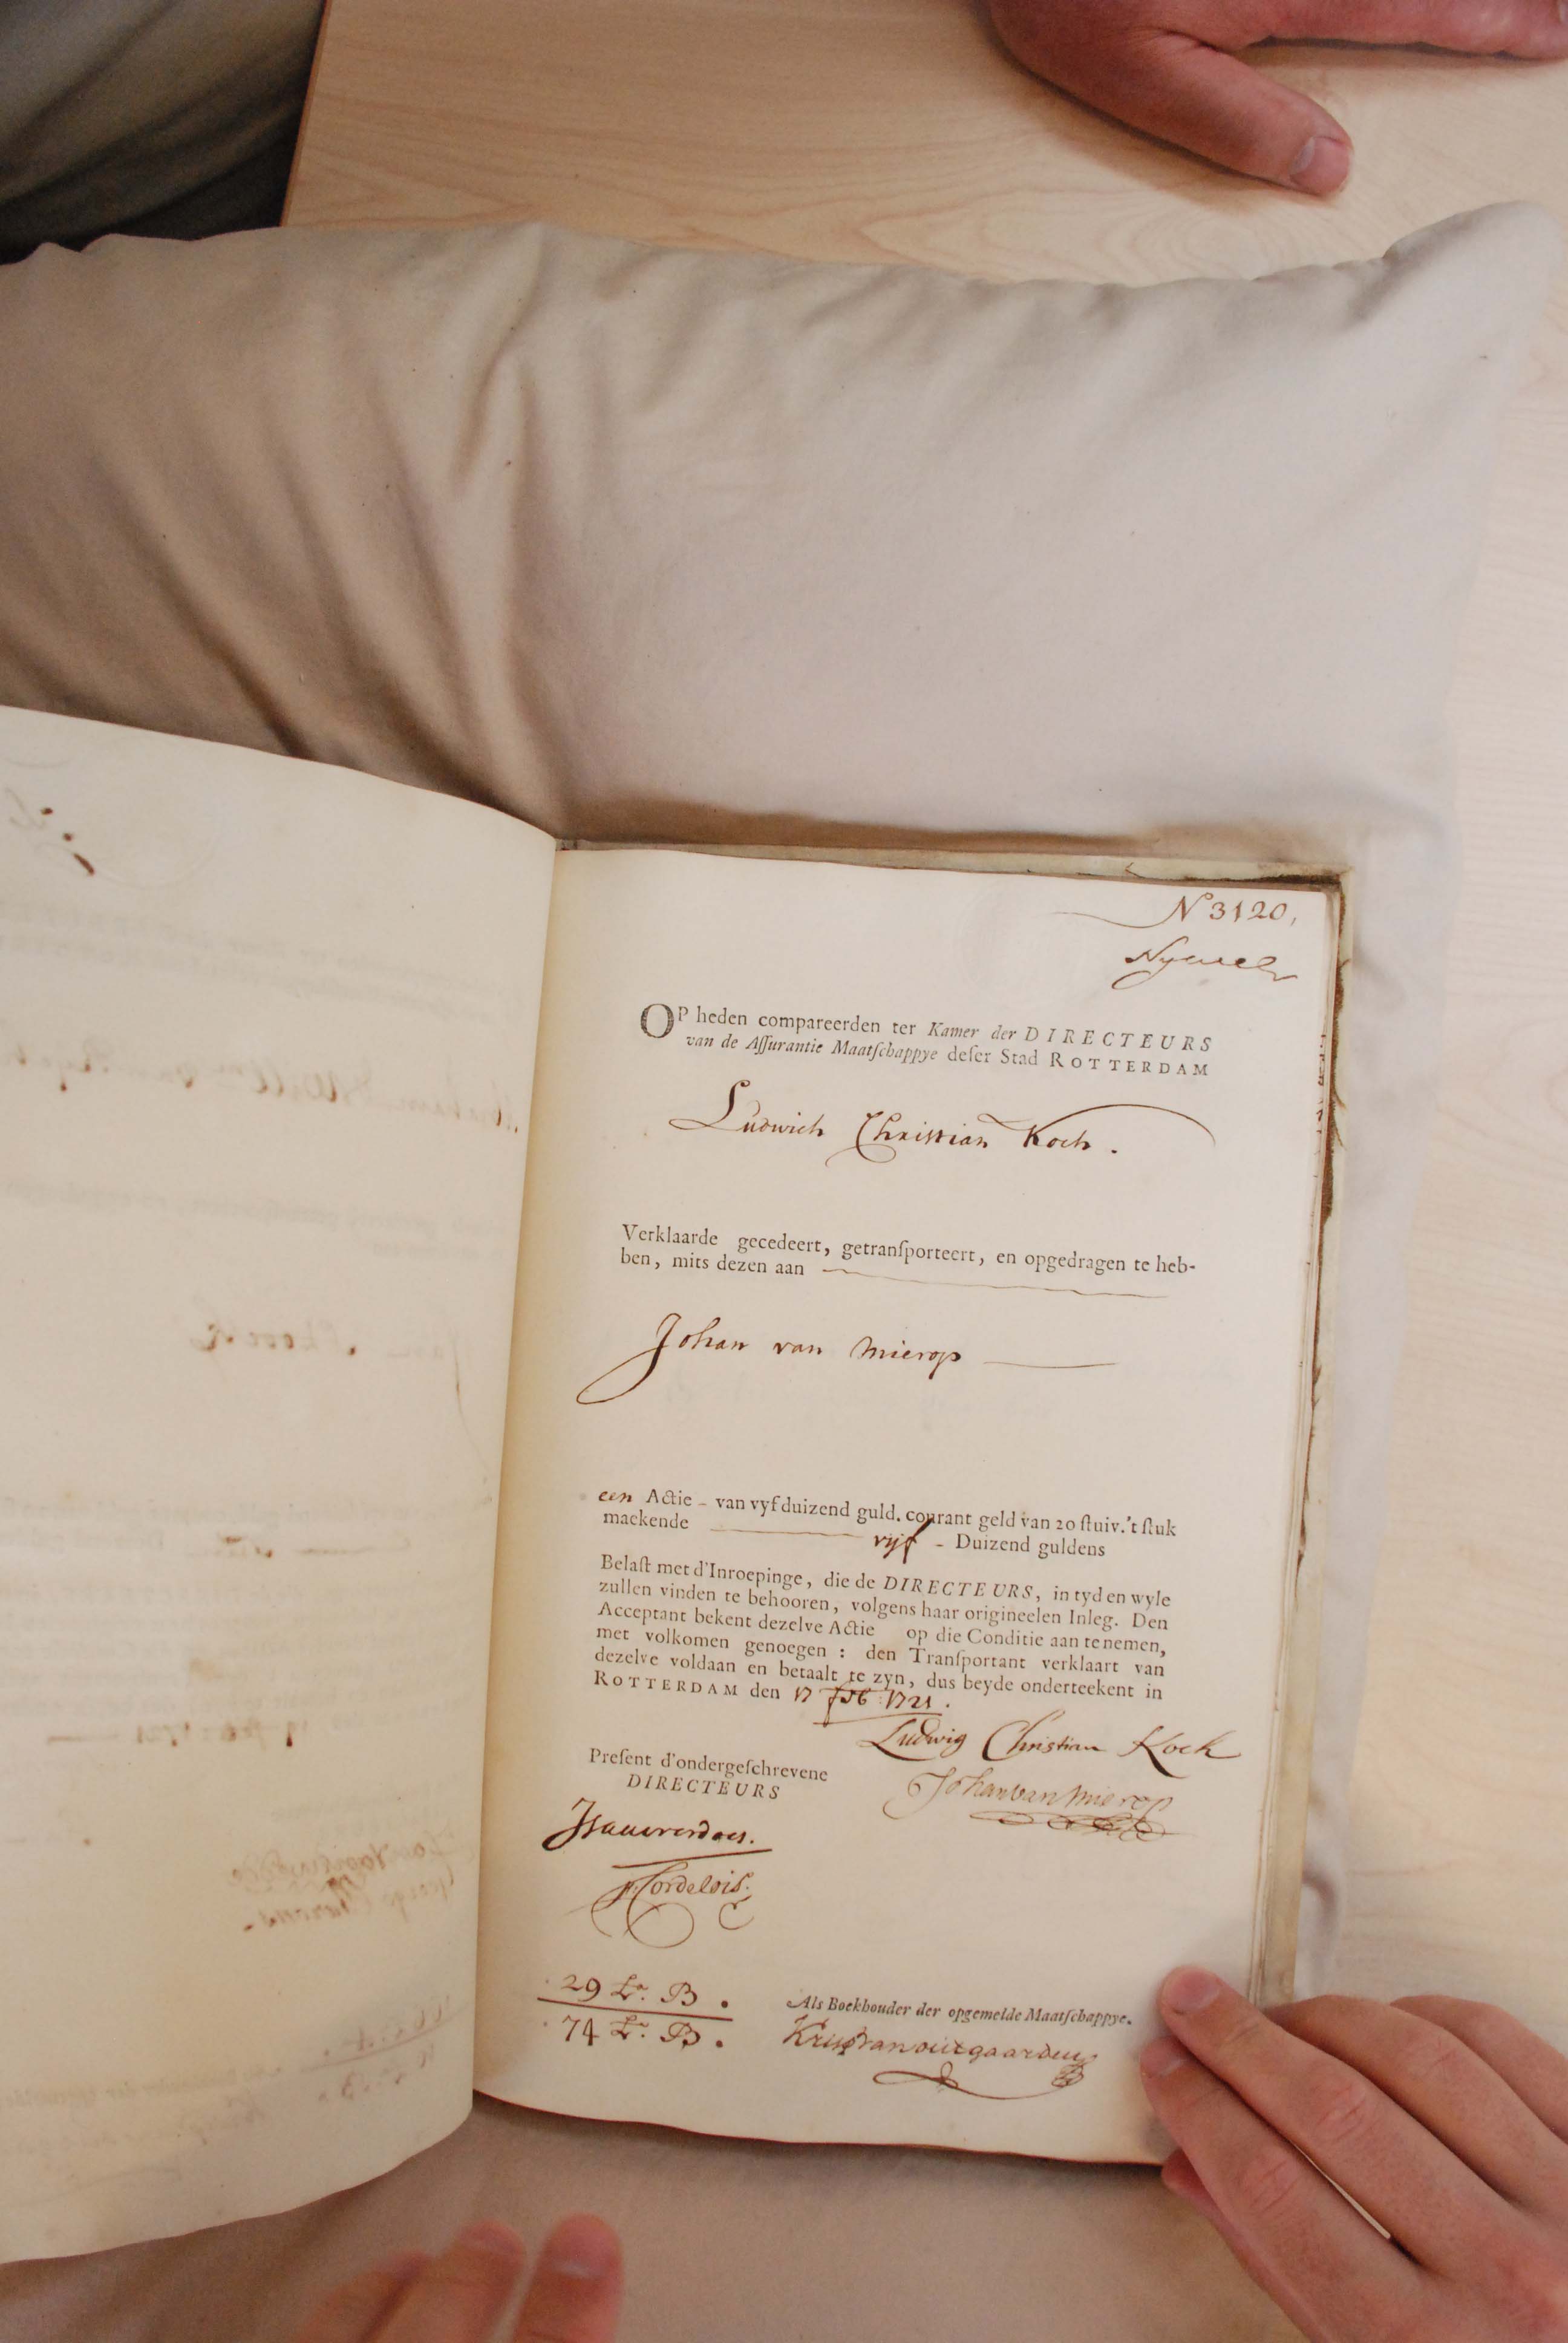 N 3120,
OP heden compareerden ter Kamer der DIRECTEURS
van de Aſſurantie Maatſchappye deſer Stad ROTTERDAM
Ludwich Christian Koch.
Verklaarde gecedeert, getranſporteert, en opgedragen te heb-
ben, mits dezen aan
Johan van Mierop
een Actie - van vyf duizend guld. courant geld van 20 ſtuiv.'t ſtuk
maekende vijf - Duizend guldens
Belaſt met d'Inroepinge, die de DIRECTEURS, in tyd en wyle
zullen vinden te behooren, volgens haar origineelen Inleg. Den
Acceptant bekent dezelve Actie op die Conditie aan te nemen,
met volkomen genoegen : den Tranſportant verklaart van
dezelve voldaan en betaalt te zyn, dus beyde onderteekent in
ROTTERDAM den 17 feb: 1721.
Ludwig Christian Koch
Johan van Mierop
Preſent d'ondergeſchrevene
DIRECTEURS
29 Lr. B.
74 Lr. B.
Als Boekhouder der opgemelde Maatſchappye.